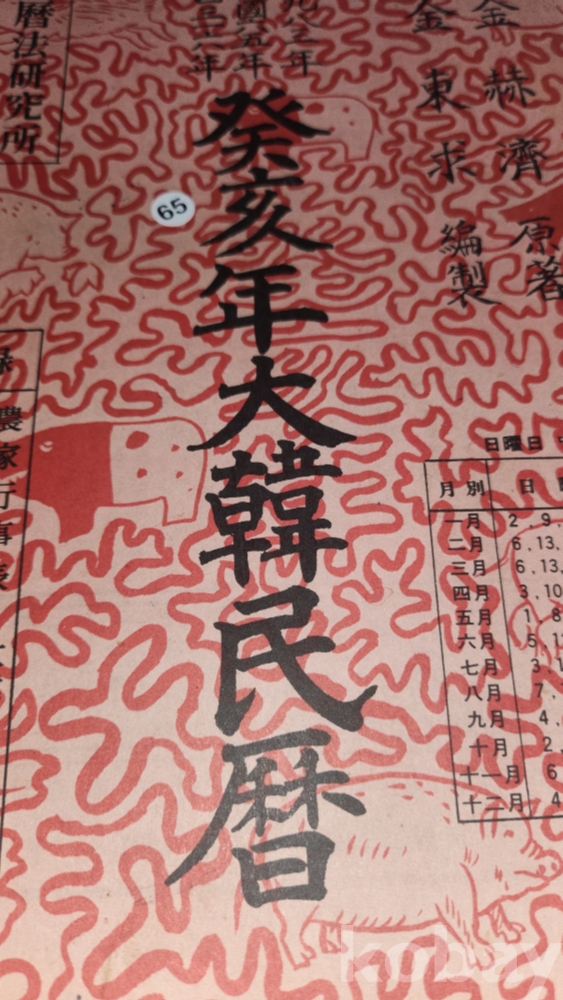 金赫濟 原著
金東求 編製
九八三年
國五年
一六年
癸亥年大韓民暦
65
曆法研究所
農家行事表
日曜日
月別 日
一月 2, 9,
二月 6, 13,
三月 6, 13,
四月 3, 10
五月 1, 8
六月 5, 12
七月 3, 1
八月 7,
九月 4,
十月 2,
十一月 6
十二月 4
kobay